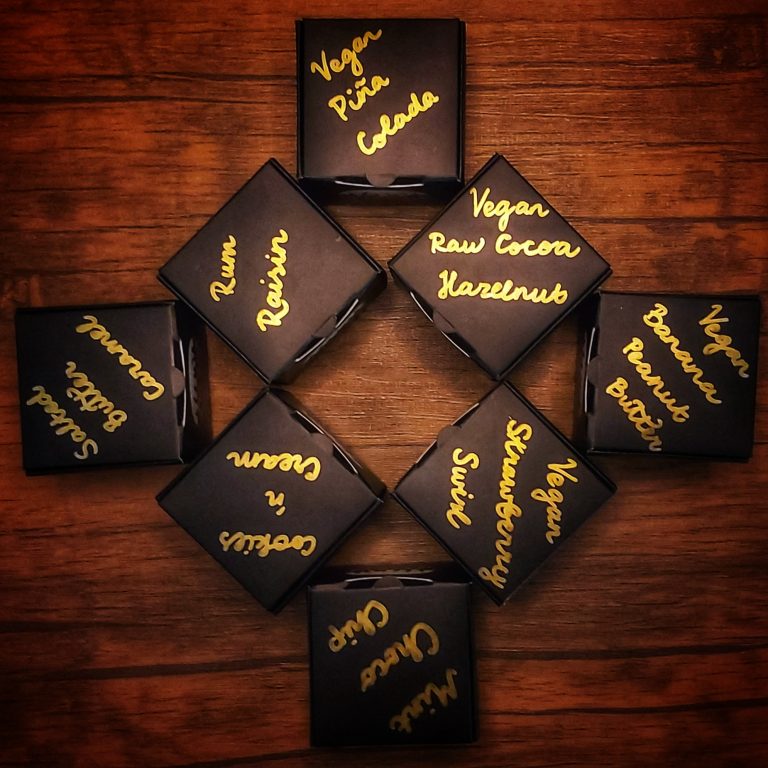 Vegan
Piña
Colada
Rum
Raisin
Vegan
Raw Cocoa
Hazelnut
Salted
Butter
Caramel
Vegan
Banana
Peanut
Butter
Cookies
'n
Cream
Vegan
Strawberry
Swirl
Mint
Choco
Chip